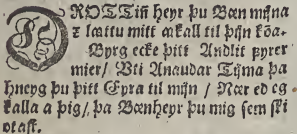 DROTTiñ heyr þu Bæn mijna
ꝛ lættu mitt akall til þijn koa.
Byrg ecke þitt Andlit fyrer
mier/ Vti Anaudar Tijma þa
hneyg þu þitt Eyra til mijn / Nær ed eg
kalla a þig/ þa Bænheyr þu mig sem ski
otast.